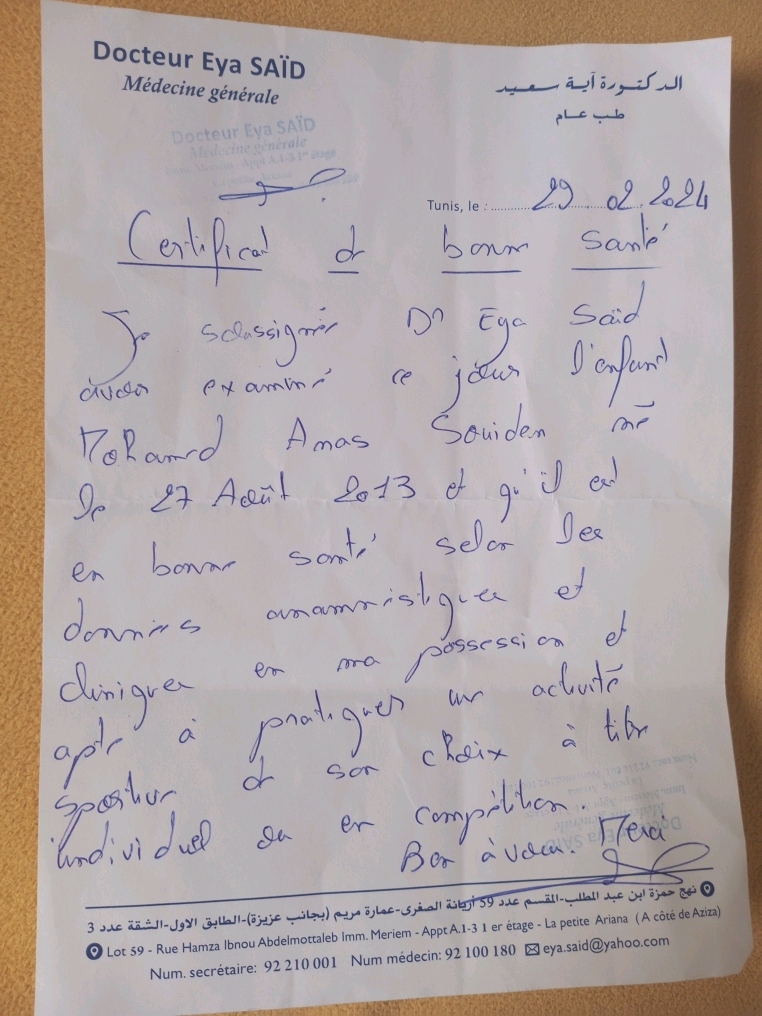 Docteur Eya SAÏD
Médecine générale
الدكتورة آية سعيد
طب عام
Docteur Eya SAÏD
Médecine générale
Imm. Meriem - Appt A.1-3 1er étage
Tunis, le : 29 02 2024
Certificat de bonne santé
Je soussignée Dr Eya Saïd
avoir examiné ce jour l'enfant
Mohamed Anas Souiden né
le 27 Août 2013 et qu'il est
en bonne santé selon les
données anamnestiques et
cliniques en ma possession et
apte à pratiquer une activité
sportive de son choix à titre
individuel ou en compétition.
Bon à valoir. Merci
Docteur Eya SAÏD
Médecine générale
نهج حمزة ابن عبد المطلب-المقسم عدد 59 أريانة الصغرى-عمارة مريم (بجانب عزيزة)-الطابق الاول-الشقة عدد 3
Lot 59 - Rue Hamza Ibnou Abdelmottaleb Imm. Meriem - Appt A.1-3 1 er étage - La petite Ariana (A côté de Aziza)
Num. secrétaire: 92 210 001 Num médecin: 92 100 180 eya.said@yahoo.com